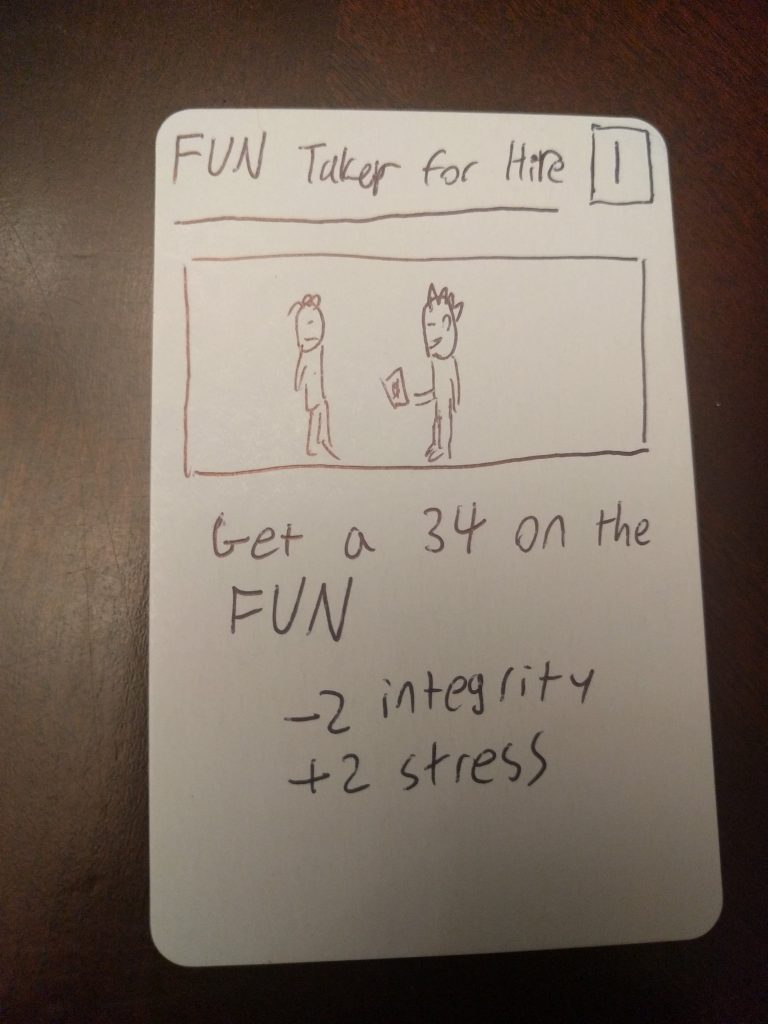 FUN Taker for Hire 1
Get a 34 on the
FUN
-2 integrity
+2 stress